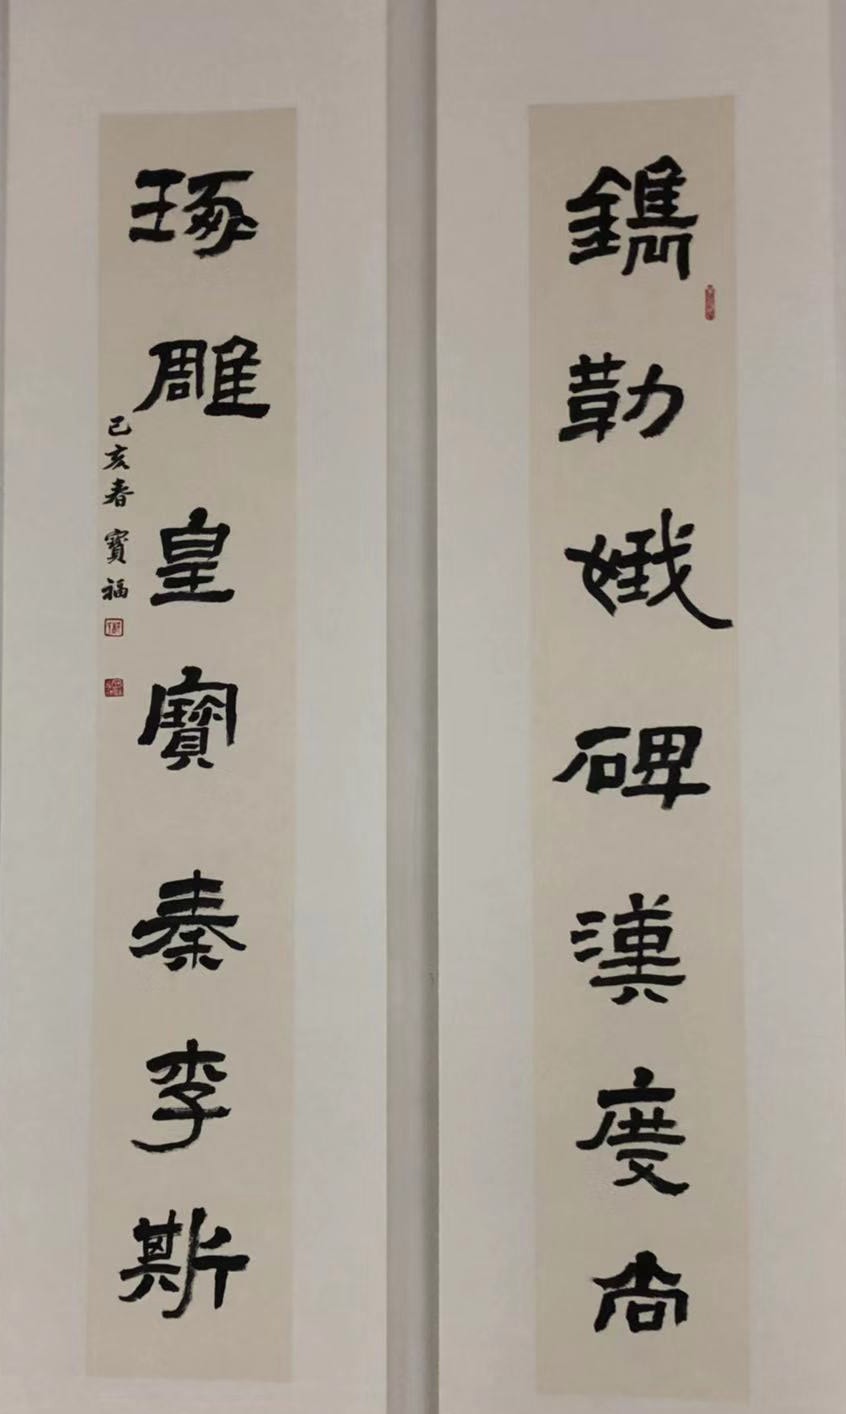 鐫勒娥碑漢度尚
琢雕皇寶秦李斯
己亥春 寶福